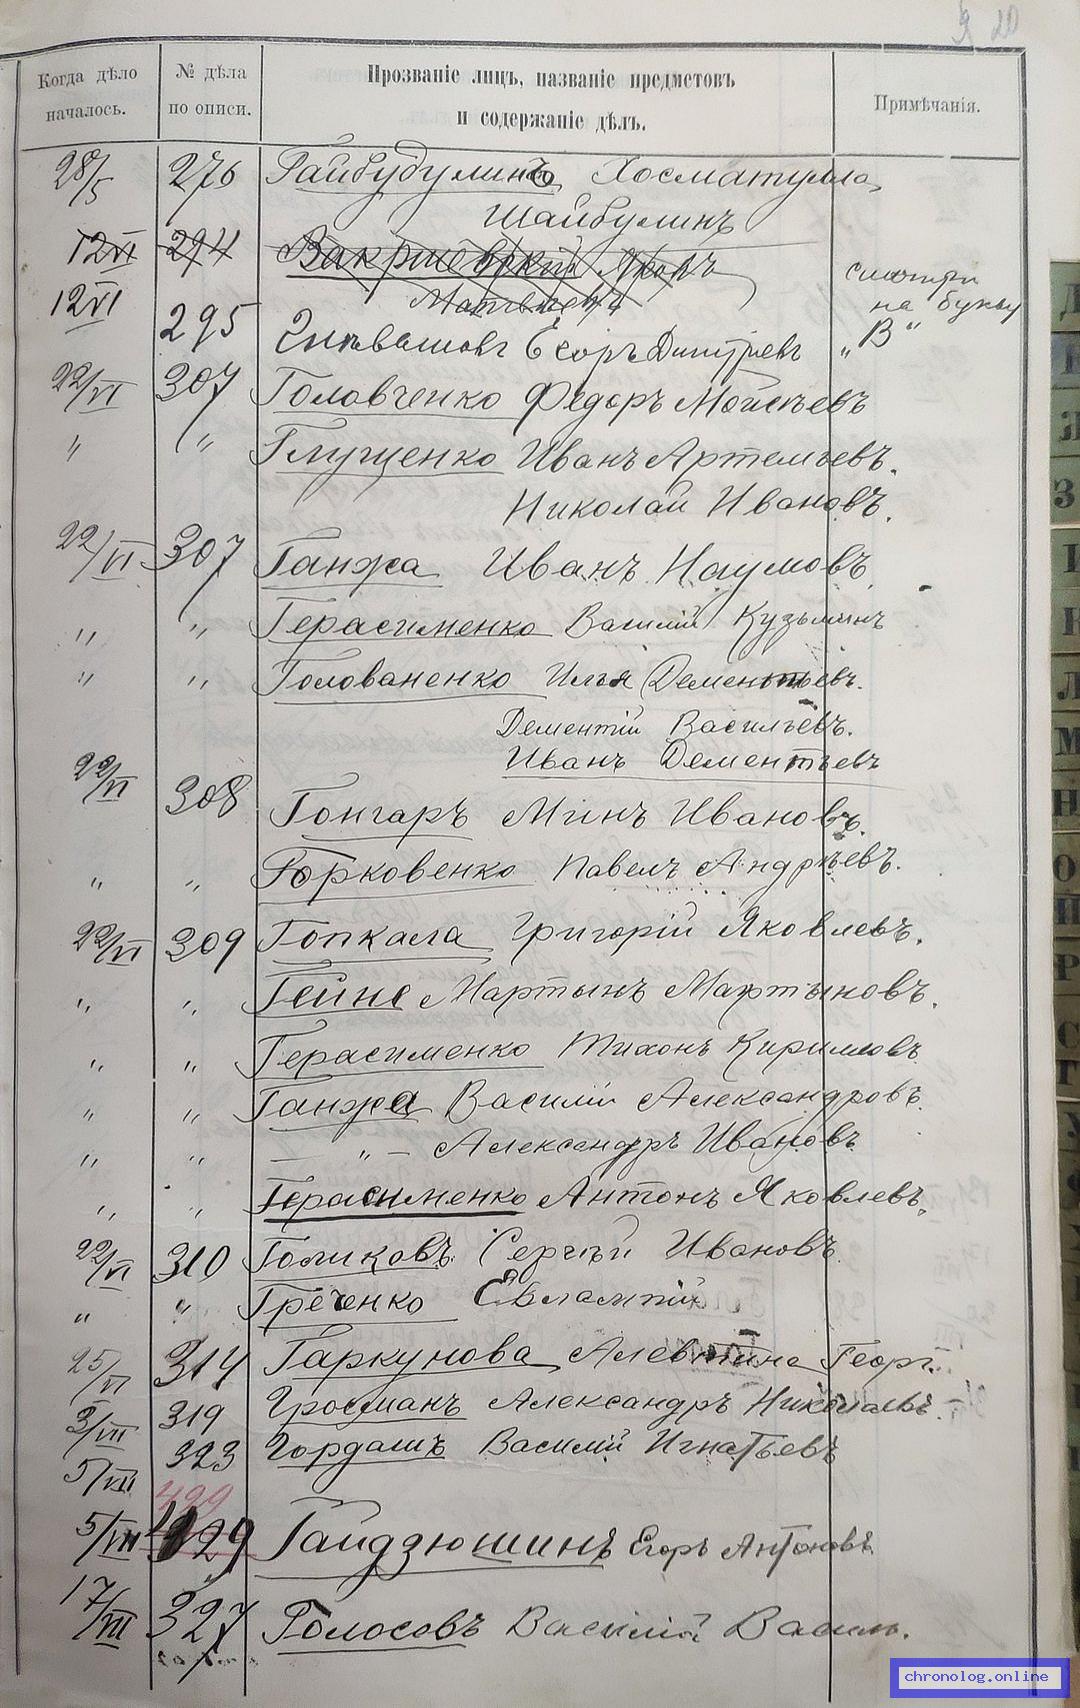 20
Когда дѣло началось.
№ дѣла по описи.
Прозваніе лицъ, названіе предметовъ и содержаніе дѣлъ.
Примѣчанія.
28/5 276 Гайбудулинъ Хосматулла
Шайбулинъ
12VI 294 Вакришевскій Яковъ
смотри
12VI Матвѣевъ
на букву
295 Егоръ Дмитріевъ „В“
22/VI 307 Головченко Федоръ Мойсѣевъ
" " Глущенко Иванъ Артемьевъ.
Николай Ивановъ.
22/VI 307 Ганжа Иванъ Наумовъ
" " Герасименко Василій Кузьминъ
" " Голованенко Илья Дементьевъ.
Дементій Васильевъ.
Иванъ Дементьевъ
22/VI 308 Гонгаръ Минъ Ивановъ.
" " Горковенко Павелъ Андрѣевъ.
22/VI 309 Гопкала Григорій Яковлевъ.
" " Гейне Мартынъ Мартыновъ.
" " Герасименко Тихонъ Кириловъ
" " Ганжа Василій Александровъ
" " — " — Александръ Ивановъ
" " Герасименко Антонъ Яковлевъ.
22/VI 310 Голиковъ Сергѣй Ивановъ
" " Греченко Евлампій
25/VI 314 Гаркунова Алевтина Георг.
3/VII 319 Гросманъ Александръ Николаевъ.
5/VII 323 Гордашъ Василій Игнатьевъ
429
5/VII 429 Гайдзюшинъ Егоръ Антоновъ
17/VII 327 Голосовъ Василій Васил.
Д
З
К
Л
М
Н
О
П
Р
С
Т
У
chronolog.online